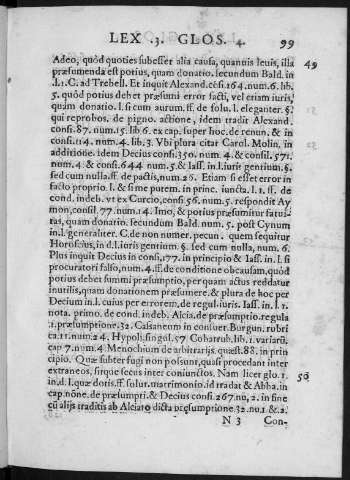 LEX .3. GLOS. 4. 99
Adeo, quòd quoties subesset alia causa, quamuis leuis, illa 49
præsumenda est potius, quam donatio. secundum Bald. in
.l.1.C. ad Trebell. Et inquit Alexand. cõsi.164.num.6. lib.
5. quòd potius debet præsumi error facti, vel etiam iuris,
quam donatio. l. si cum aurum. ff. de solu. l. eleganter. §.
qui reprobos. de pigno. actione, idem tradit Alexand.
consi.87. num.15. lib 6. ex cap. super hoc. de renun. & in
consi.114. num.4. lib.3. Vbi plura citat Carol. Molin, in
additione. idem Decius consi.350. num.4. & consil.571.
num.4. & consi.644 num.5. & Iass. in l. iuris gentium. §.
sed cum nulla. ff. de pactis, num.26. Etiam si esset error in
facto proprio. l. & si me putem. in princ. iuncta. l. 1. ff. de
cond. indeb. vt ex Curcio, consi.56. num.5. respondit Ay
mon, consil.77. num.14. Imo, & potius præsumitur fatui-
tas, quam donatio. secundum Bald. num.5. post Cynum
in.l. generaliter. C. de non numer. pecun. quem sequitur
Horosius, in d.l. iuris gentium. §. sed cum nulla, num.6.
Plus inquit Decius in consi,177. in principio & Iass. in.l. si
procuratori falso, num.4. ff. de conditione ob causam, quòd
potius debet sumi præsumptio, per quam actus reddatur
inutilis, quam donationem præsumere. & plura de hoc per
Decium in.l. cuius per errorem, de regul. iuris. Iass. in. l. 1.
nota. primo. de cond. indeb. Alcia. de præsumptio. regula
.1. præsumptione.32. Cassaneum in consuet. Burgun. rubri
ca 11. num.24. Hypoli. singul.57 Cobarrub. lib. 1. variarũ,
cap 7. num.4 Menochium de arbitrarijs. quæst.88. in prin
cipio. Quæ subter fugi non possunt, quasi procedant inter
extraneos, sitque secus inter coniunctos. Nam licet glo. 1. 50
in.d.l. quæ dotis. ff. solut. matrimonio. id tradat & Abba. in
cap. nõne. de præsumpti. & Decius consi.267. nu, 2. in fine
cũ alijs traditis ab Alciato dicta præsumptione 32. nu.1 & 2.
N 3 Con-